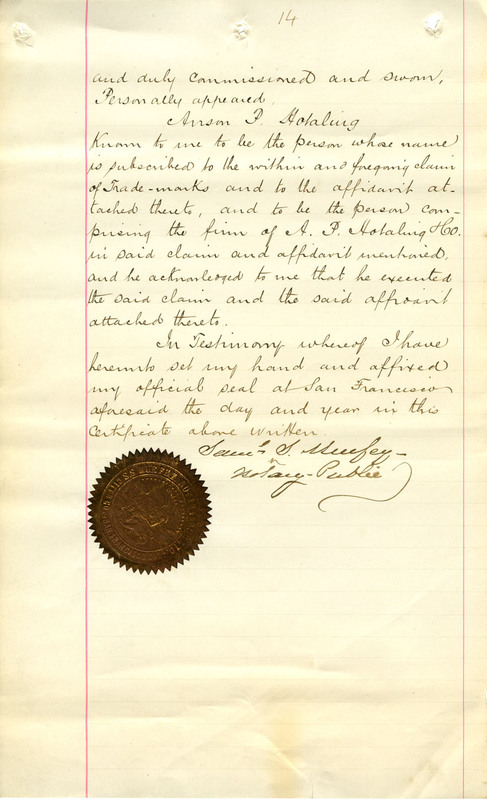 14
and duly commissioned and sworn,
Personally appeared,
Anson P. Hotaling
Known to me to be the person whose name
is subscribed to the within and foregoing claim
of Trade-marks and to the affidavit at-
tached thereto, and to be the person com-
prising the firm of A. P. Hotaling & Co.
in said claim and affidavit mentioned,
and he acknowledged to me that he executed
the said claim and the said affidavit
attached thereto.
In Testimony whereof I have
hereunto set my hand and affixed
my official seal at San Francisco
aforesaid the day and year in this
Certificate above written.
Saml. S. Murfey
Notary-Public